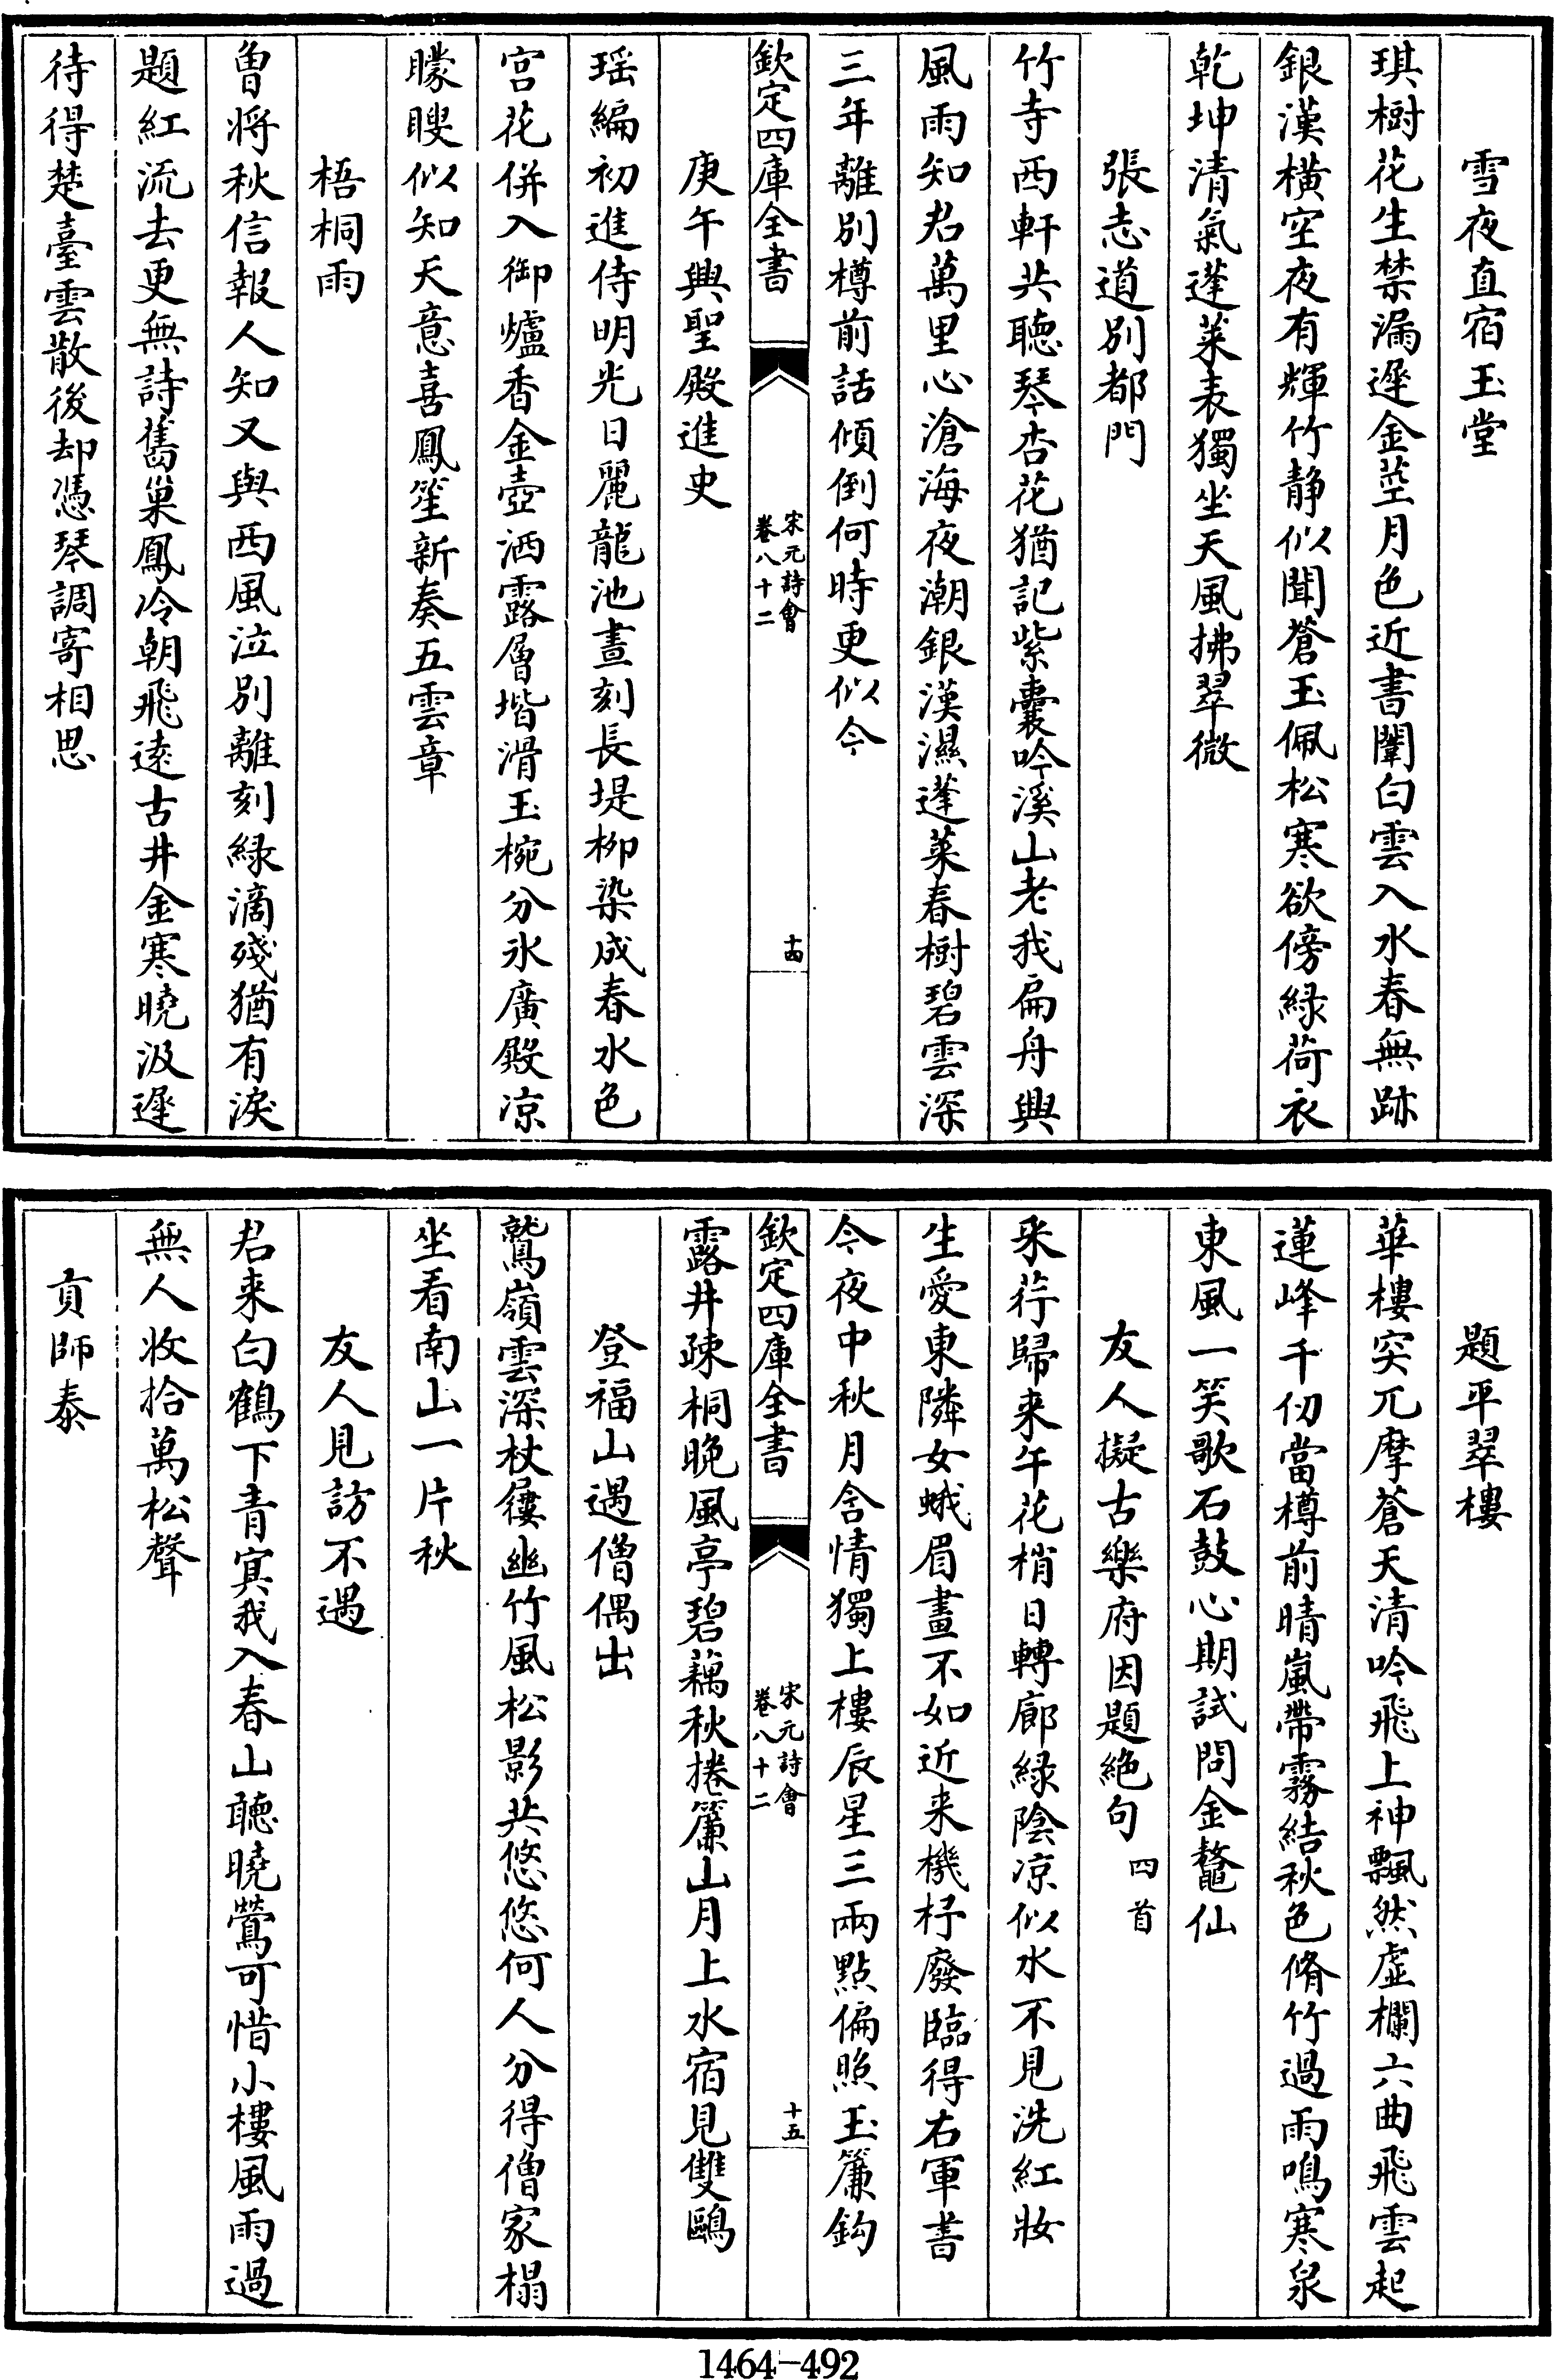 雪夜直宿玉堂
琪樹花生禁漏遲金莖月色近書闈白雲入水春無跡
銀漢橫空夜有輝竹静似聞蒼玉佩松寒欲傍緑荷衣
乾坤清氣蓬萊表獨坐天風拂翠微
張志道别都門
竹寺西軒共聴琴杏花猶記紫囊吟溪山老我扁舟興
風雨知君萬里心滄海夜潮銀漢濕蓬萊春樹碧雲深
三年離别樽前話傾倒何時更似今
欽定四庫全書
宋元詩會
卷八十二
十四
庚午興聖殿進史
瑶編初進侍明光日麗龍池晝刻長堤柳染成春水色
宫花併入御爐香金壺洒露層堦滑玉椀分氷廣殿凉
矇瞍似知天意喜鳳笙新奏五雲章
梧桐雨
曾將秋信報人知又與西風泣别離刻緑滴殘猶有淚
題紅流去更無詩舊巢鳳冷朝飛逺古井金寒曉汲遲
待得楚臺雲散後却憑琴調寄相思
題平翠樓
華樓突兀摩蒼天清吟飛上神飄然虚欄六曲飛雲起
蓮峰千仞當樽前晴嵐帶霧結秋色脩竹過雨鳴寒泉
東風一笑歌石鼓心期試問金鼇仙
友人擬古樂府因題絶句四首
采荇歸来午花梢日轉廊緑陰凉似水不見洗紅妝
生愛東隣女蛾眉畫不如近来機杼廢臨得右軍書
今夜中秋月含情獨上樓辰星三兩點偏照玉簾鈎
欽定四庫全書
宋元詩會
卷八十二
十五
露井疎桐晚風亭碧藕秋捲簾山月上水宿見雙鷗
登福山遇僧偶出
鷲嶺雲深杖屨幽竹風松影共悠悠何人分得僧家榻
坐看南山一片秋
友人見訪不遇
君来白鶴下青㝠我入春山聴曉鶯可惜小樓風雨過
無人收拾萬松聲
貢師泰
1464-492